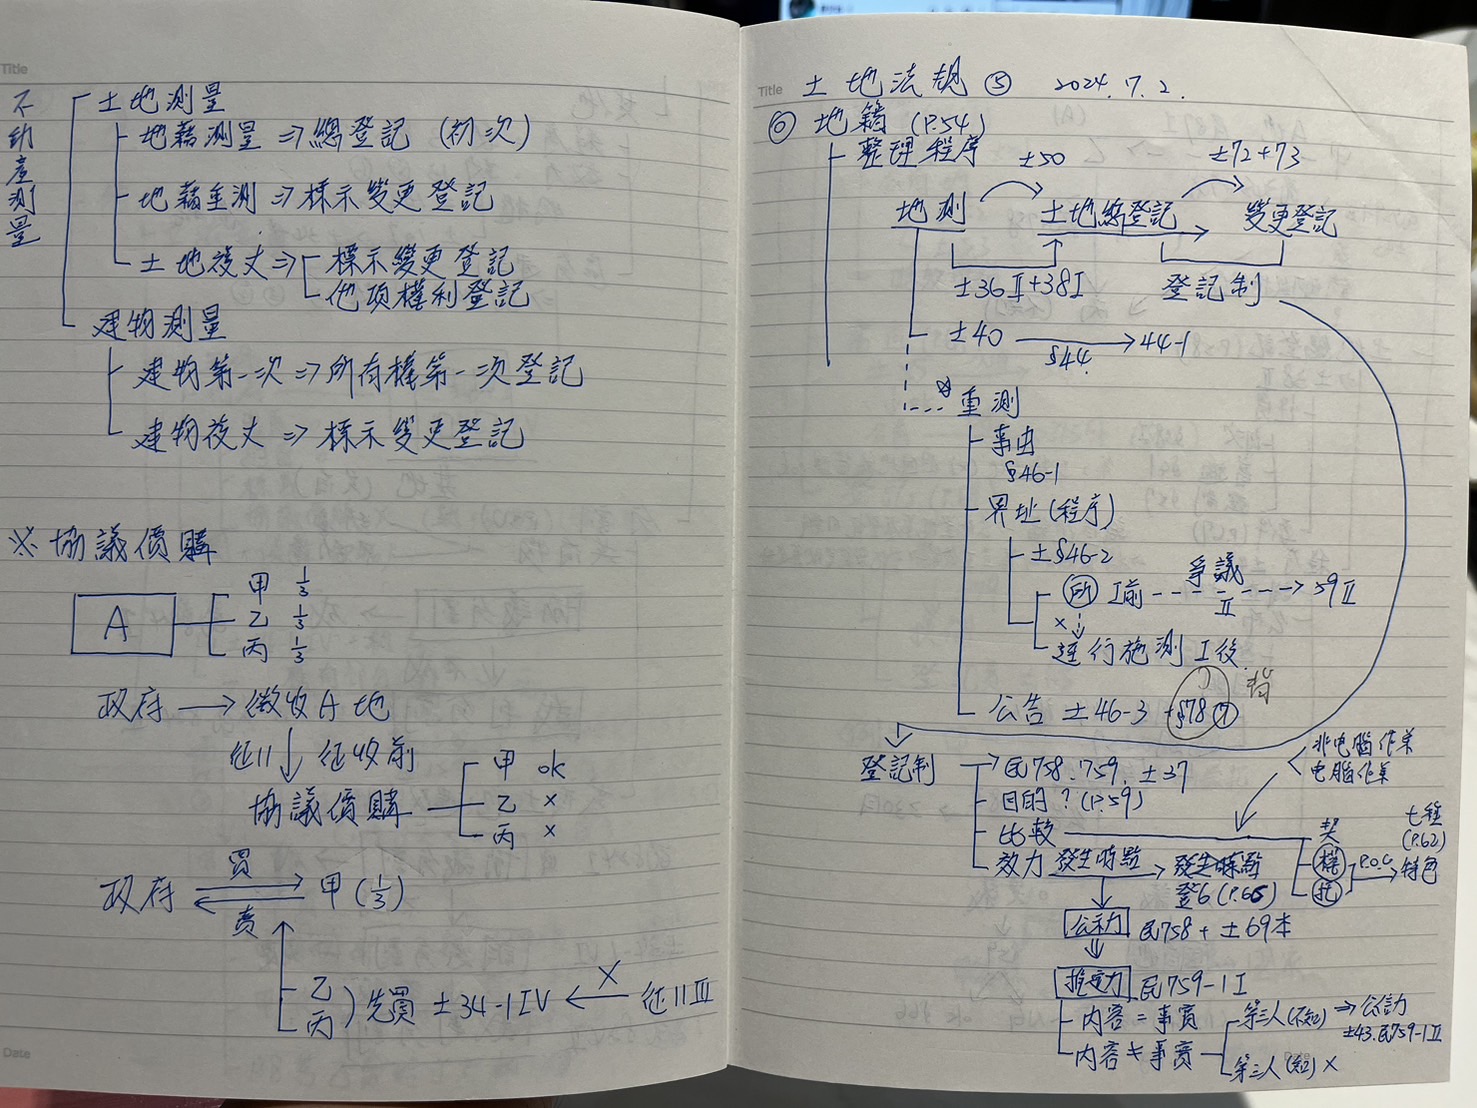 Title
不動產測量
土地測量
地藉測量 ⇒ 總登記 (初次)
地藉重測 ⇒ 標示變更登記
土地複丈 ⇒ 標示變更登記
他項權利登記
建物測量
建物第一次 ⇒ 所有權第一次登記
建物複丈 ⇒ 標示變更登記
※ 協議價購
A
甲 1/3
乙 1/3
丙 1/3
政府 → 徵收A地
征11 ↓ 征收前
協議價購
甲 ok
乙 ×
丙 ×
買
政府 甲 (1/3)
賣
乙
丙 ) 先買 土34-1 IV ← × 征11 III
Date
Title 土地法規 ⑤ 2024.7.2.
⑥ 地籍 (P.54)
整理程序 土50 土72+73
地測 土地總登記 變更登記
土36 II+38 I 登記制
土40 → 44-1
§44
重測
事由
§46-1
界址 (程序)
土§46-2
所 I前 爭議 → 59 II
II
×
逕行施測 I後
公告 土46-3 + §78⑦ 背
登記制 → 民758.759. 土37
目的? (P.59)
比較
非电腦作業
电腦作業
契
權
托
七種
(P.62)
特色
效力 發生時點 → 發生時點
登6 (P.65)
公示力 民758 + 土69本
推定力 民759-1 I
內容 = 事實
內容 ≠ 事實
第三人 (不知) ⇒ 公信力
土43. 民759-1 II
第三人 (知) ×